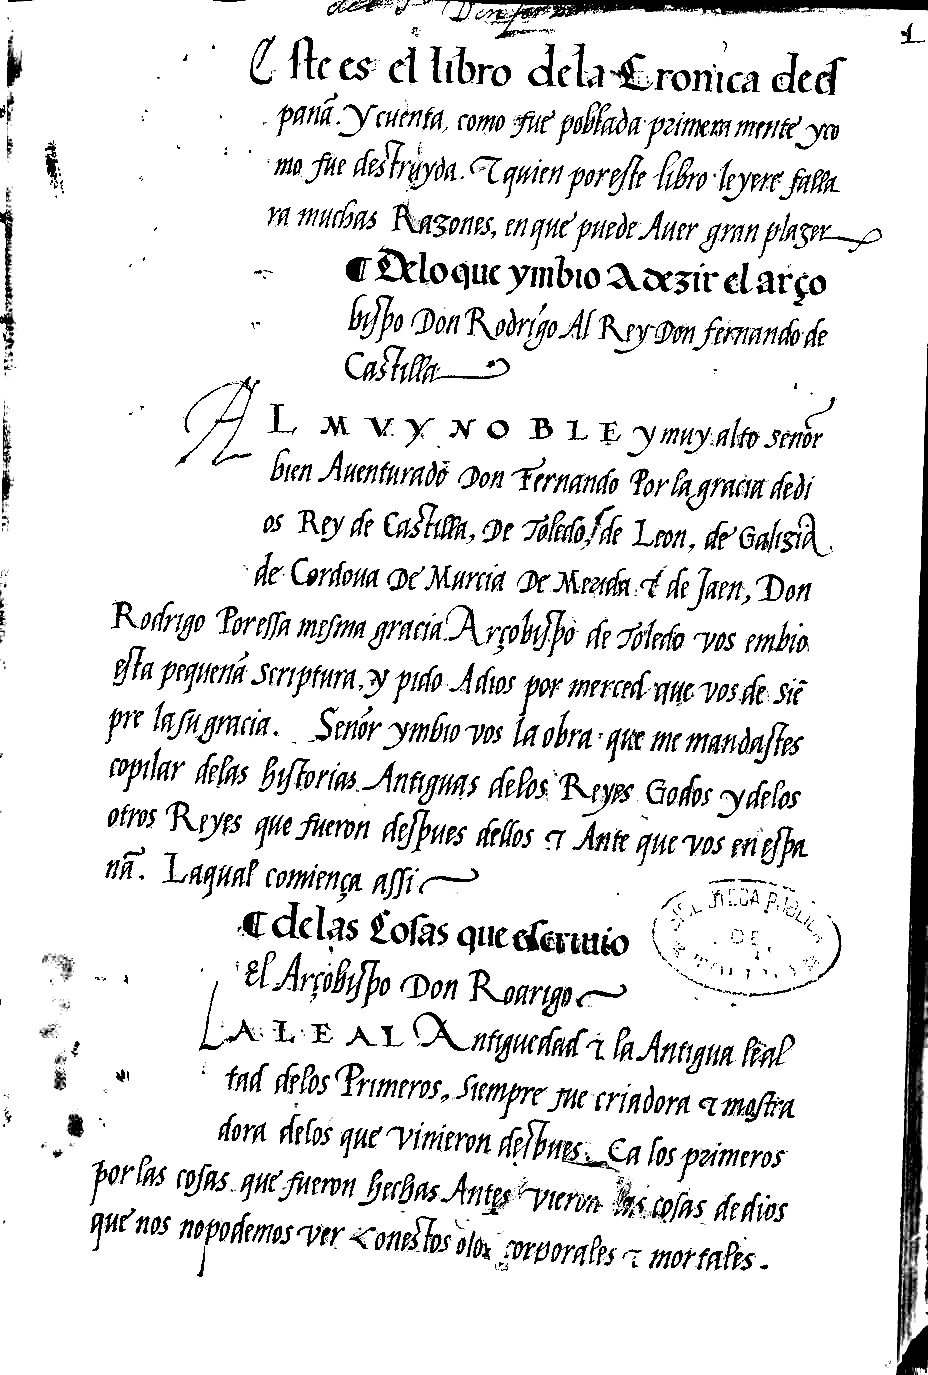 1
Este es el libro dela Cronica dees
panã. Y cuenta, como fue poblada primera mente y co
mo fue destruyda. & quien por este libro leyere falla
ra muchas Razones, en que puede Auer gran plazer
¶ Delo que ymbio A dezir el arço
bispo Don Rodrigo Al Rey Don fernando de
Castilla
AL MVY NOBLE y muy alto senõr
bien Auenturado Don Fernando Por la gracia de di
os Rey de Castilla, De Toledo, de Leon, de Galizia
de Cordoua De Murcia De Merida & de Jaen, Don
Rodrigo Por essa mesma gracia Arçobispo de Toledo vos embio
esta pequenã scriptura, y pido A dios por merced que vos de siẽ
pre la su gracia. Senõr ymbio vos la obra que me mandastes
copilar delas historias Antiguas delos Reyes Godos y delos
otros Reyes que fueron despues dellos & Ante que vos en espa
nã. La qual comiença assi
¶ delas Cosas que escriuio
El Arçobispo Don Rodrigo
LA LEAL Antiguedad & la Antigua leal
tad delos Primeros, siempre fue criadora & mostra
dora delos que vinieron despues. Ca los primeros
por las cosas que fueron hechas Antes vieron las cosas de dios
que nos no podemos ver Con estos olos corporales & mortales.